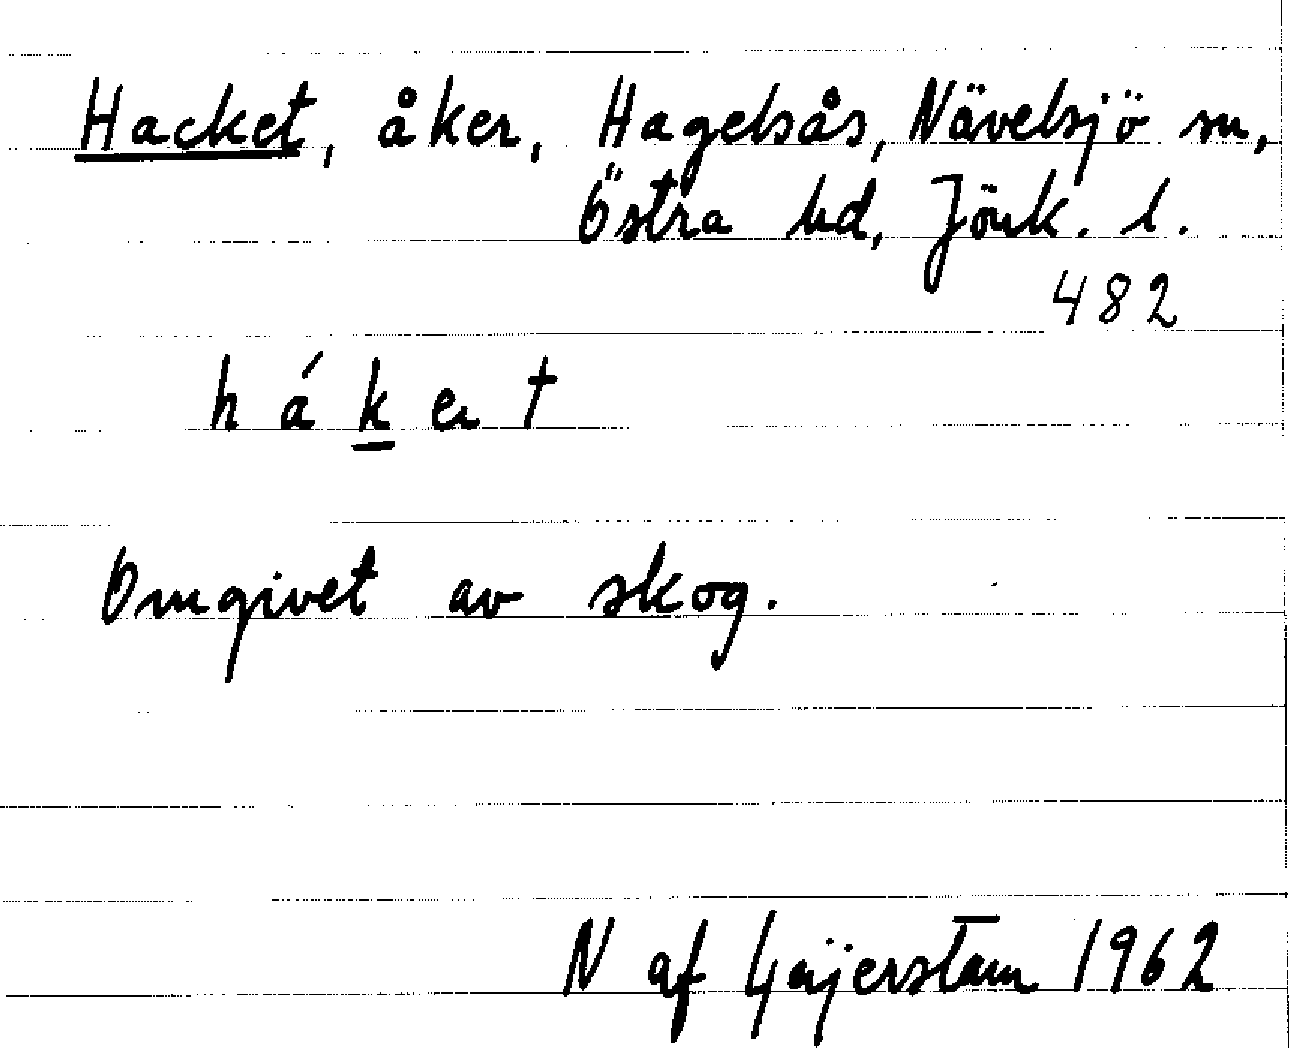 Hacket, åker, Hagelsås, Nävelsjö sn,
Östra hd, Jönk. l.
482
h á k e t
Omgivet av skog.
N af Geijerstam 1962